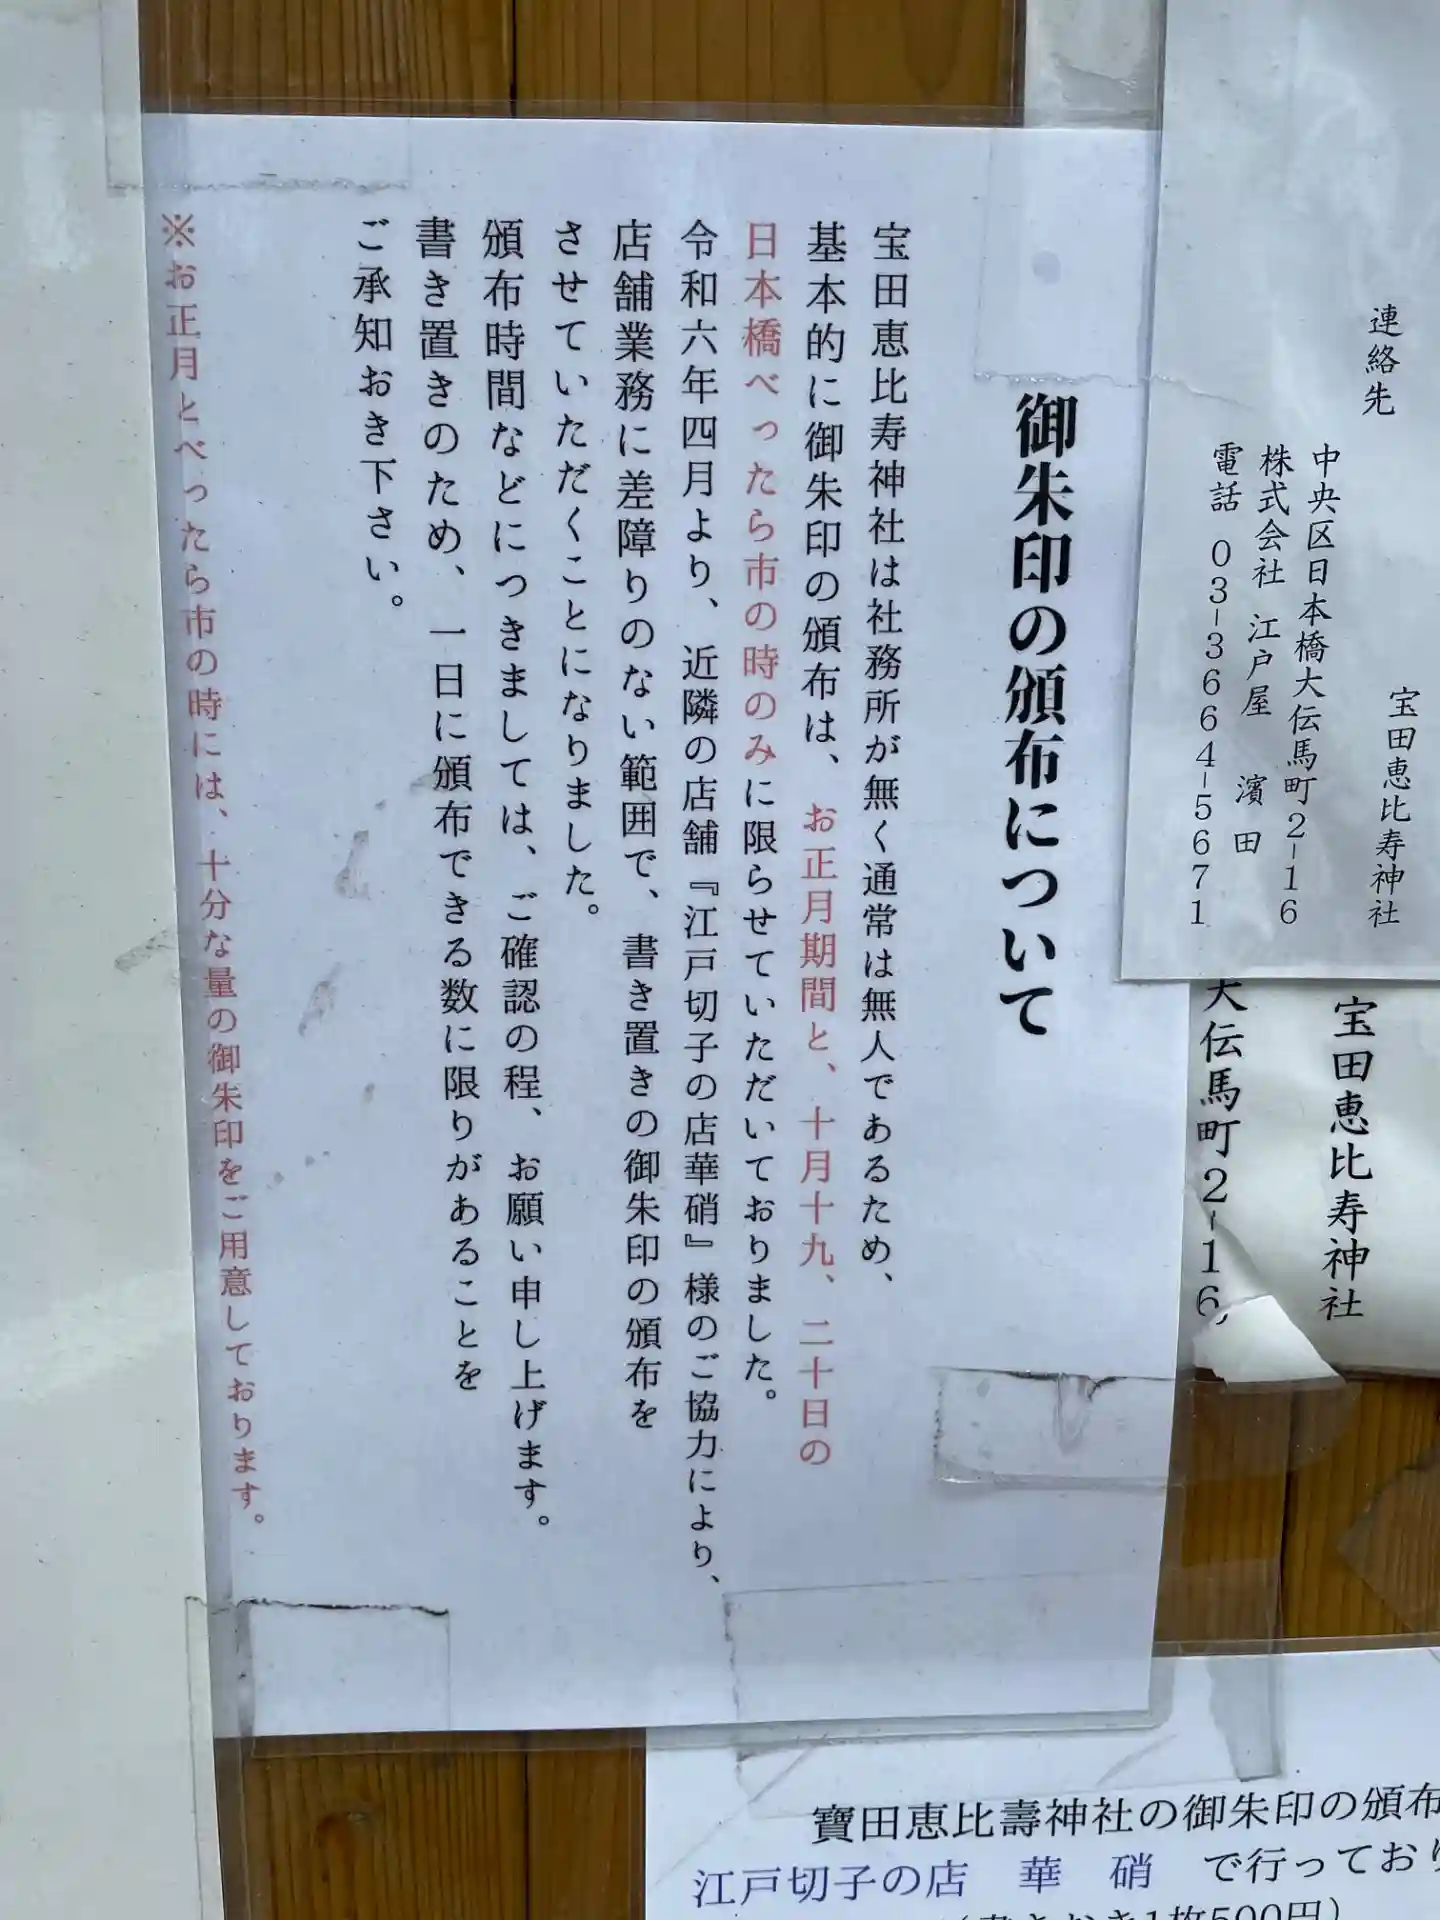 連絡先
宝田恵比寿神社
中央区日本橋大伝馬町2-16
株式会社 江戸屋 濱田
電話 03-3664-5671
宝田恵比寿神社
大伝馬町2-16
御朱印の頒布について
宝田恵比寿神社は社務所が無く通常は無人であるため、
基本的に御朱印の頒布は、お正月期間と、十月十九、二十日の
日本橋べったら市の時のみに限らせていただいておりました。
令和六年四月より、近隣の店舗『江戸切子の店華硝』様のご協力により、
店舗業務に差障りのない範囲で、書き置きの御朱印の頒布を
させていただくことになりました。
頒布時間などにつきましては、ご確認の程、お願い申し上げます。
書き置きのため、一日に頒布できる数に限りがあることを
ご承知おき下さい。
※お正月とべったら市の時には、十分な量の御朱印をご用意しております。
寶田恵比壽神社の御朱印の頒布
江戸切子の店 華 硝 で行っており
(書きおき1枚500円)